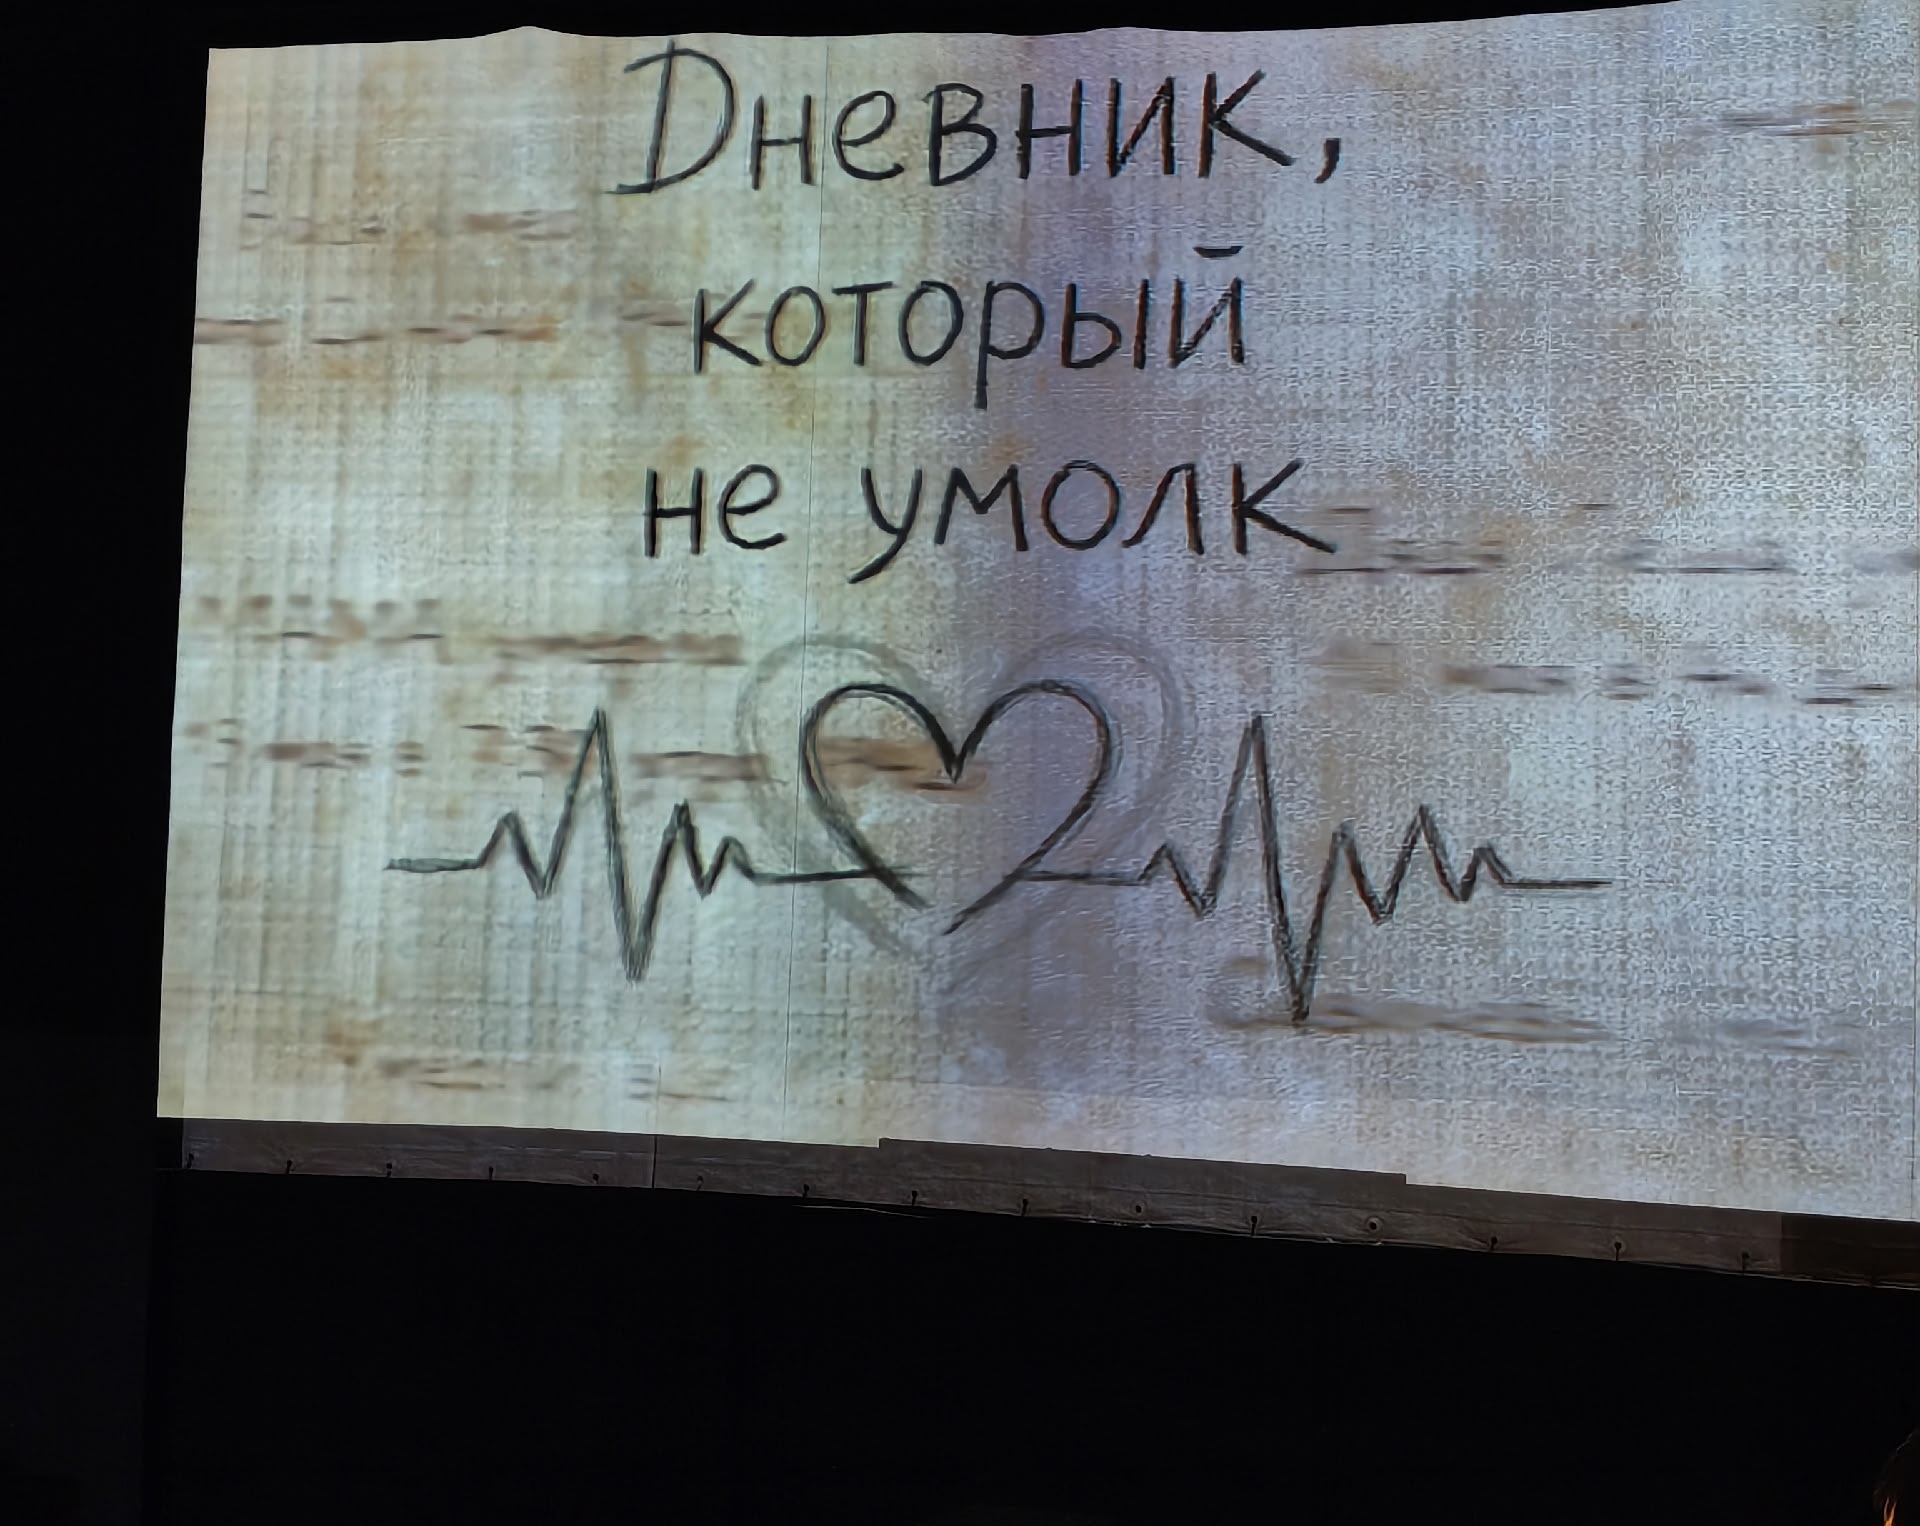 Дневник,
который
не умолк